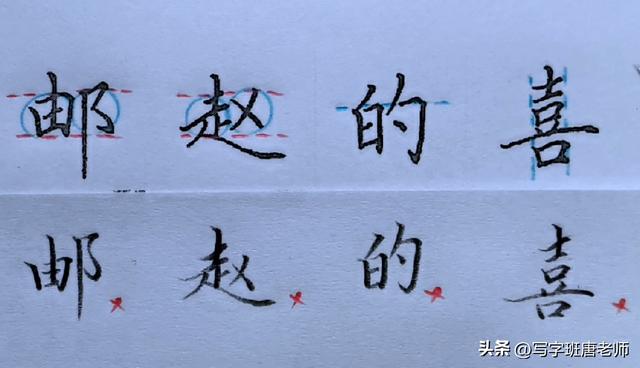 邮 赵 的 喜
邮 赵 的 喜
头条 @写字班唐老师